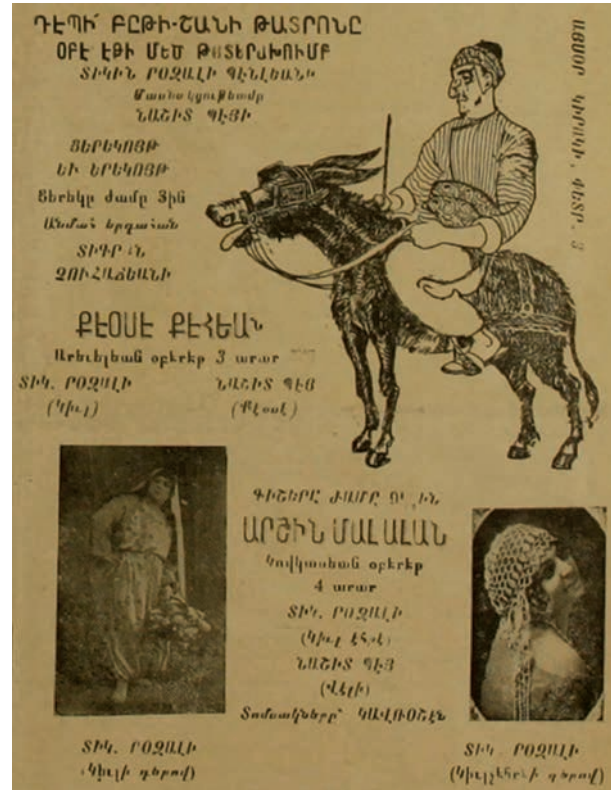 ԴԷՊԻ՛ ԲԸԹԻ-ՇԱՆԻ ԹԱՏՐՈՆԸ
ՕԲԷ ԷԹԻ ՄԵԾ ԹԱՏԵՐԱԽՈՒՄԲ
ՏԻԿԻՆ ՐՕԶԱԼԻ ՊԷՆԼԵԱՆԻ
Մասնակցութեամբ
ՆԱՇԻՏ ՊԷՅԻ
ՑԵՐԵԿՈՅԹ
ԵՒ ԵՐԵԿՈՅԹ
Ցերեկը ժամը 3ին
Անմահ երգահան
ՏԻԳՐԱՆ
ՉՈՒՀԱՃԵԱՆԻ
ՔԷՕՍԷ ՔԷՀԵԱՆ
Արեւելեան օբէրէթ 3 արար
ՏԻԿ. ՐՕԶԱԼԻ
(Կիւլ)
ՆԱՇԻՏ ՊԷՅ
(Քէօսէ)
ԱՅՍՕՐ ԿԻՐԱԿԻ, ՓԵՏՐ. 3
ԳԻՇԵՐԸ ԺԱՄԸ
ԱՐՇԻՆ ՄԱԼ ԱԼԱՆ
Կովկասեան օբէրէթ
4 արար
ՏԻԿ. ՐՕԶԱԼԻ
ՆԱՇԻՏ ՊԷՅ
(Վէլի)
Տոմսակները՝ ԿԱՎՌՕՇԷՆ
ՏԻԿ. ՐՕԶԱԼԻ
(Կիւլի դերով)
ՏԻԿ. ՐՕԶԱԼԻ
(Կիւլչէհրէի դերով)